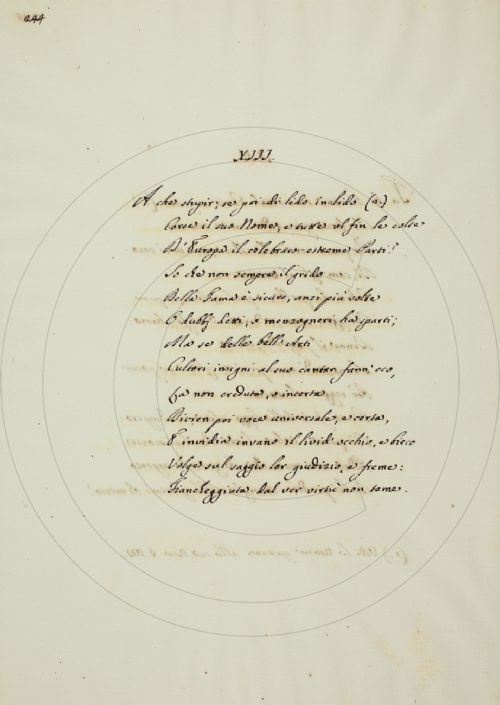 244
XIII.
A che stupir; se poi di lido in lido (a)
Corse il suo Nome, e tutte al fin le colse
D'Europa il celebraro estreme Parti?
So che non sempre il grido
Della Fama è sicuro, anzi più volte
O dubbj detti, o menzogneri ha sparti;
Ma se delle bell'Arti
Cultori insigni al suo cantar fann'eco,
Fa non creduta, o incerta
Divien poi voce universale, e certa,
E invidia invano il livid'occhio, e bieco
Volge sul saggio lor giudizio, e freme:
Fiancheggiata dal ver virtù non teme.